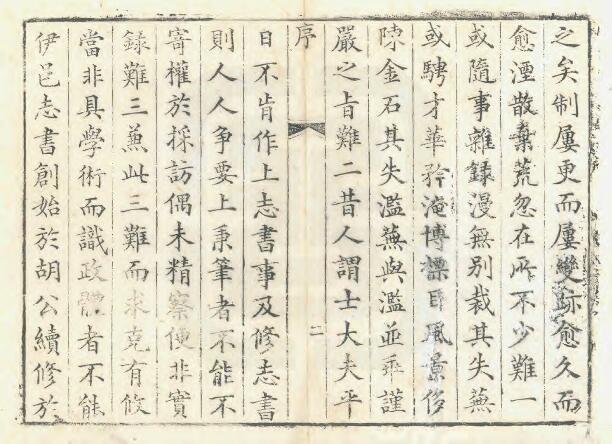 之矣制屢更而屢變跡愈久而
愈湮散棄荒忽在所不少難一
或隨事雜録漫無別裁其失蕪
或騁才華矜淹博標目風景侈
陳金石其失濫蕪與濫並乖謹
嚴之旨難二昔人謂士大夫平
序
二
日不肯作上志書事及修志書
則人人争要上秉筆者不能不
寄權於採訪偶未精察便非實
録難三兼此三難而求克有攸
當非具學術而識政體者不能
伊邑志書創始於胡公續修於